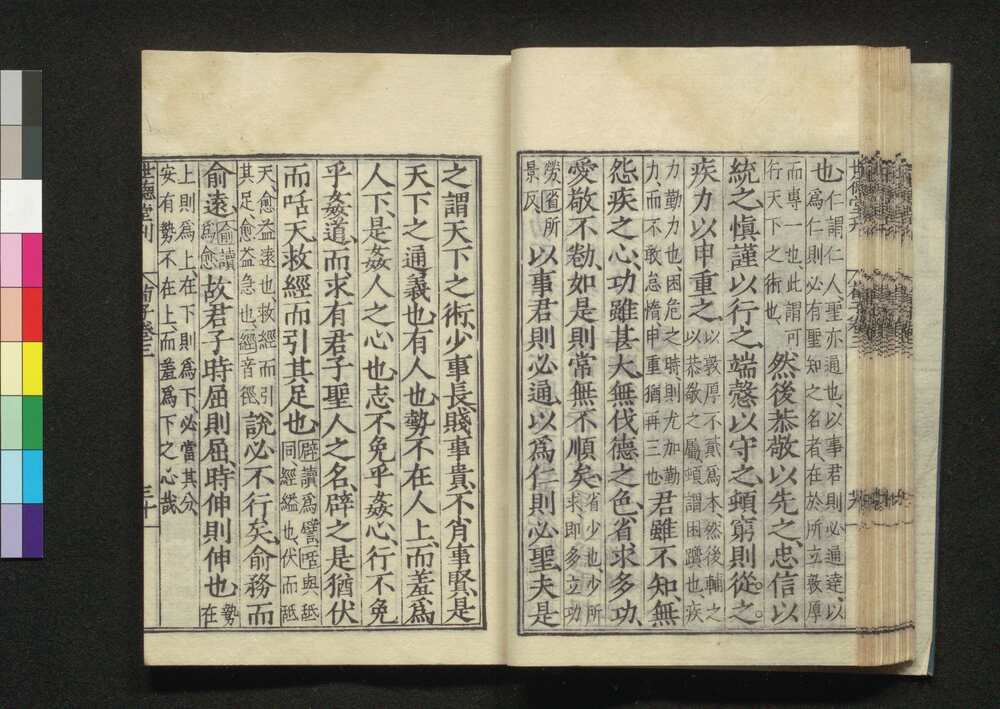 也、仁謂仁人聖亦通也以事君則必通達、以
爲仁則必有聖知之名者、在於所立敦厚
而專一也、此謂可
行天下之術也、然後恭敬以先之、忠信以
統之、慎謹以行之、端慤以守之、頓窮則從之。
疾力以申重之、以敦厚不貳爲本、然後輔之
以恭敬之屬頓謂困躓也疾
力勤力也、困危之時則尤加勤
力而不敢怠惰申重猶再三也君雖不知、無
怨疾之心、功雖甚大、無伐德之色、省求多功、
愛敬不勌、如是則常無不順矣、省少也少所
求、即多立功
勞、省所
景反、以事君則必通、以爲仁則必聖、夫是
之謂天下之術、少事長、賤事貴、不肖事賢、是
天下之通義也、有人也、勢不在人上、而羞爲
人下、是姦人之心也、志不免乎姦心、行不免
乎姦道、而求有君子聖人之名、辟之是猶伏
而咶天、救經而引其足也、辟讀爲譬咶與舐
同經縊也、伏而舐
天、愈益遠也、救經而引
其足愈益急也、經音徑說必不行矣、俞務而
俞遠、俞讀
爲愈故君子時屈則屈、時伸則伸也、勢
在
上則爲上、在下則爲下、必當其分
安有勢不在上、而羞爲下之心哉
世德堂刊
荀子卷三
三十